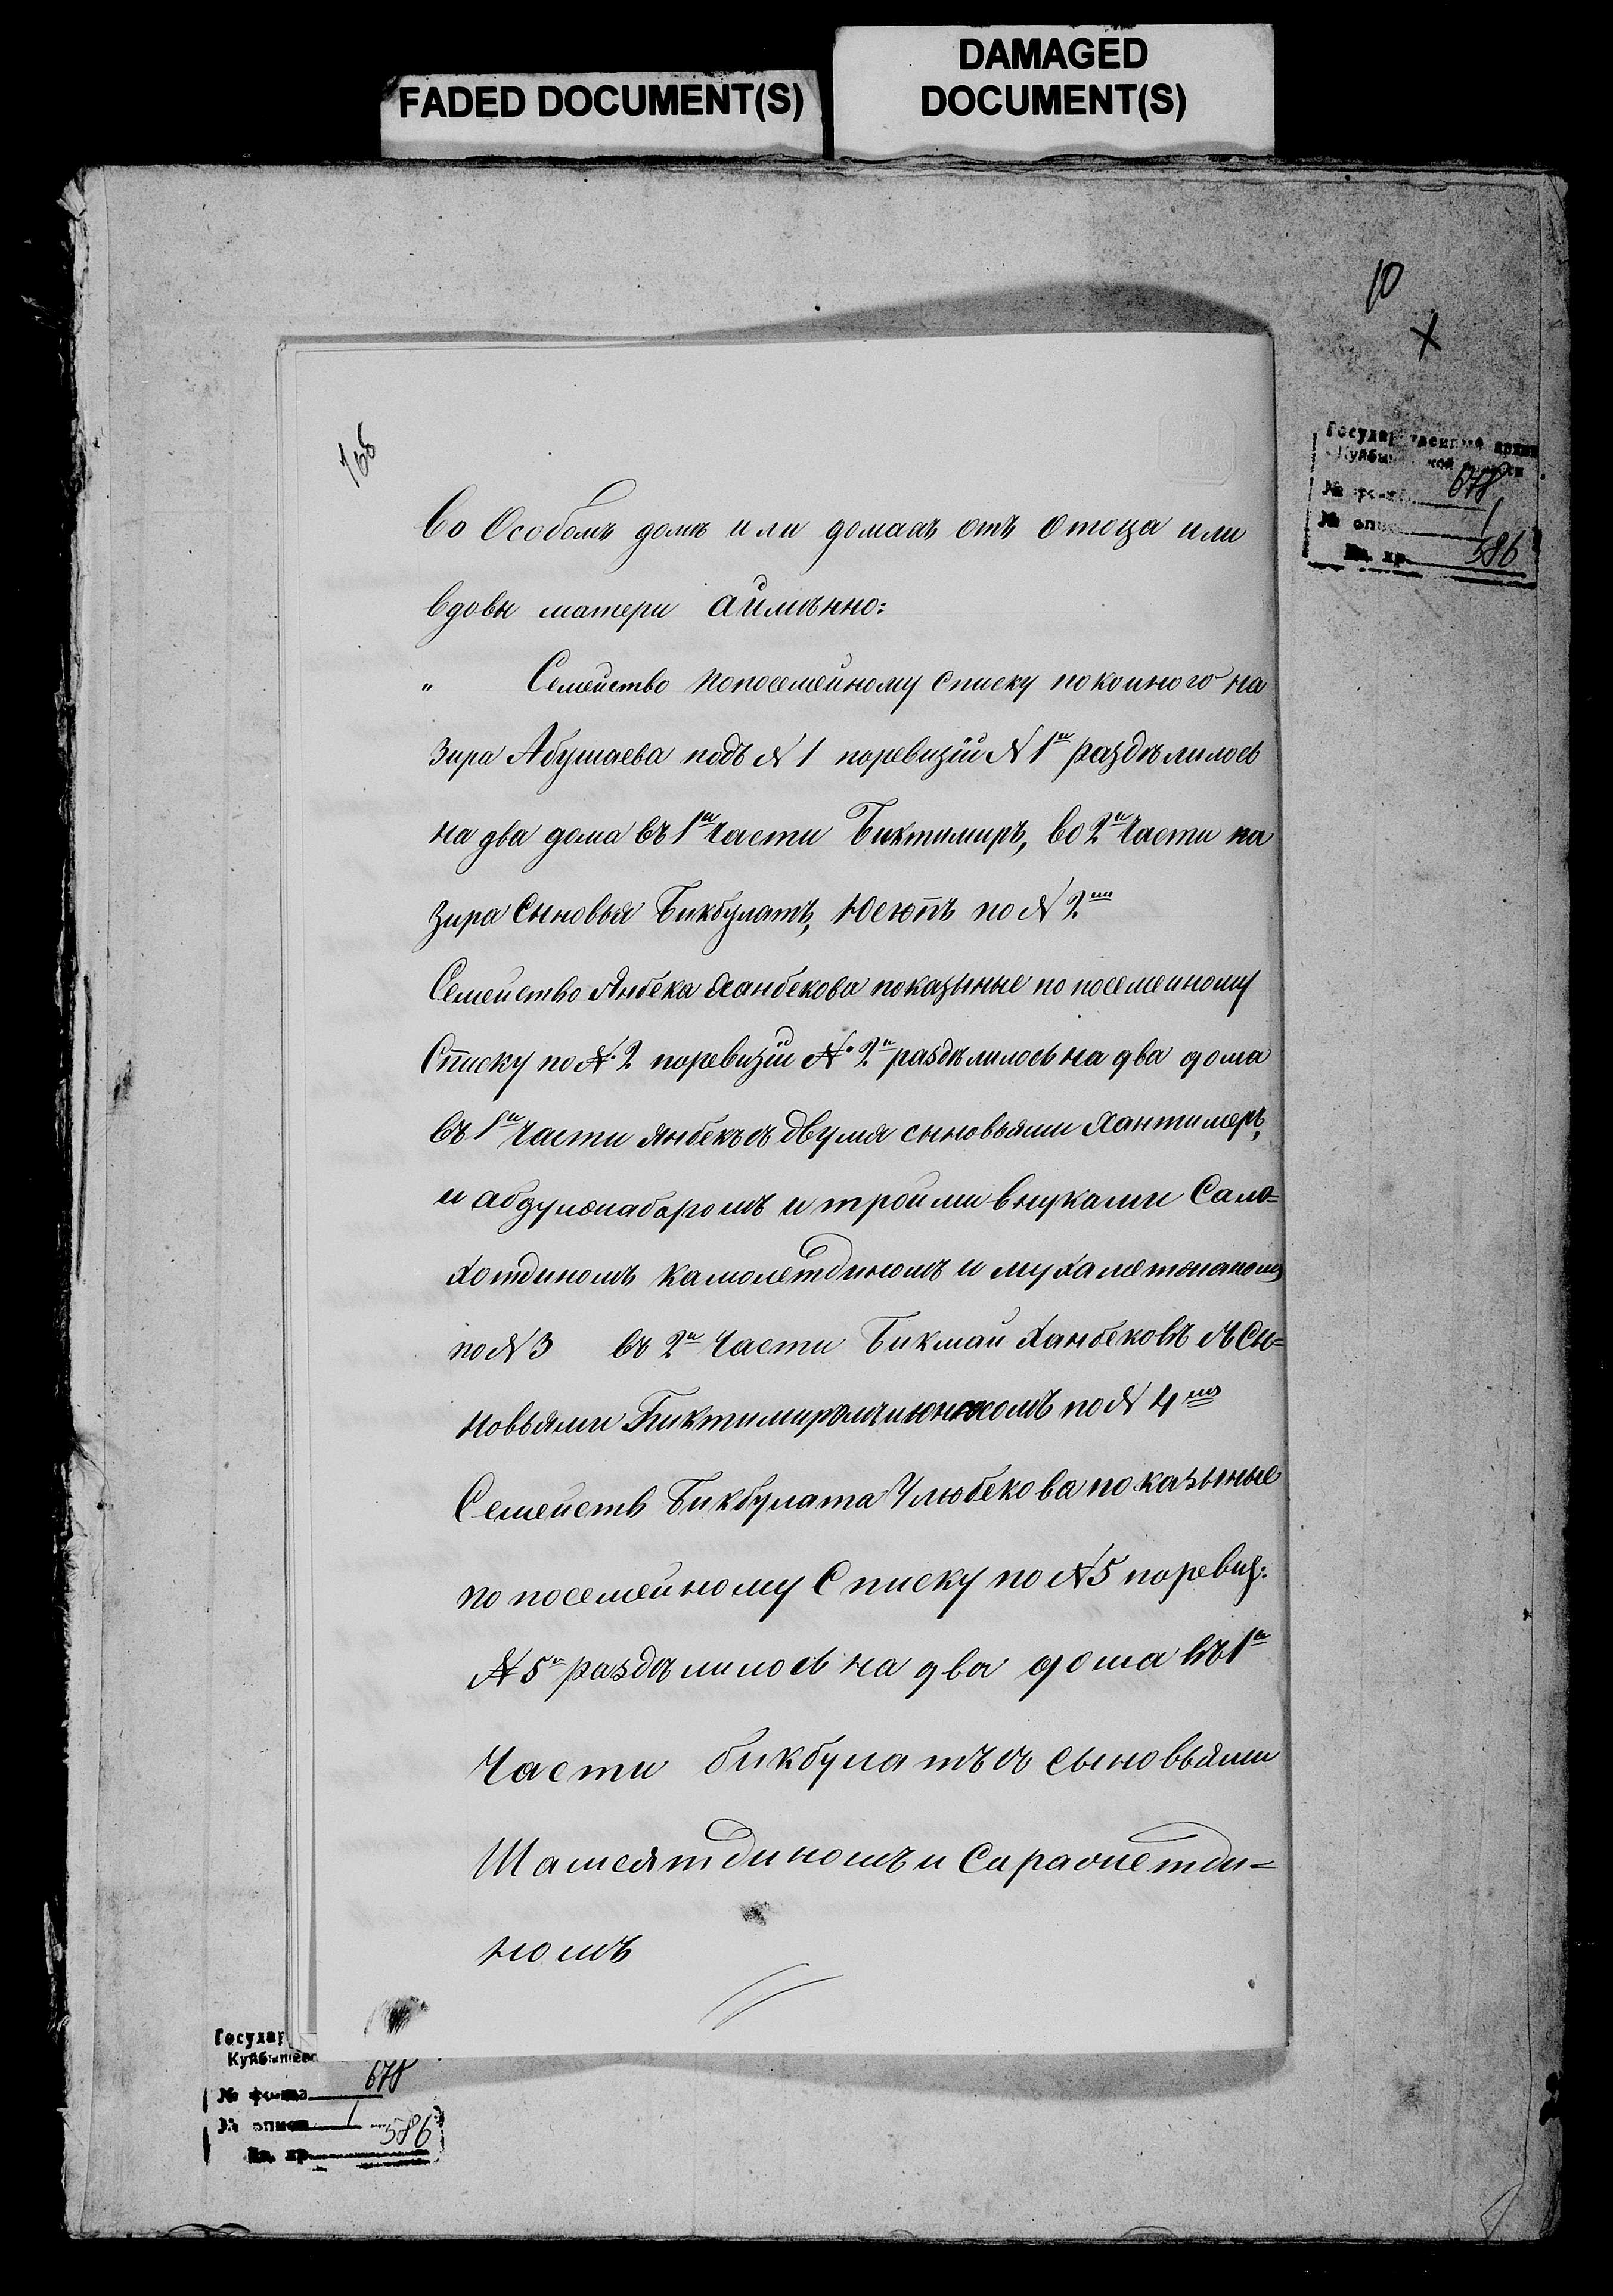 FADED DOCUMENT(S)
DAMAGED
DOCUMENT(S)
10
х
166
Государственный архив
Куйбышевской области
№ фонда 678
№ описи 1
Ед. хр. 586
Во Особомъ домѣ или домахъ отъ Отоца или
вдовы матери аимѣнно:
" Семейство попосемейному списку покоиного на
зира Абушаева подъ № 1 поревизіи № 1й раздѣлилось
на два дома въ 1й Части Биктимиръ, во 2й Части на
зира Сыновья Бикбулатъ, Юсюпъ по № 2мъ
Семейство Янбека Ханбекова показыные по посемеиному
Списку по № 2 поревизіи № 2й раздѣлилось на два дома
въ 1й Части янбекъ съ двумя сыновьями Хантимеръ,
и абдулжабаромъ и троими внуками Сало=
хотдиномъ камолетдиномъ и мухаметжаномъ
по № 3 въ 2й Части Бикмаи Ханбековъ съ Сы=
новьями Биктимиромъ по № 4мъ
Семейств Бикбулата Улюбекова показыные
по посемейному Списку по № 5 поревиз:
№ 5й раздѣлилось на два дома въ 1й
Части бикбулатъ съ сыновьями
Шамсятдиномъ и Сараѳметди=
номъ
Государ
Куйбышевс
№ фонда 678
№ описи 1
Ед. хр. 586